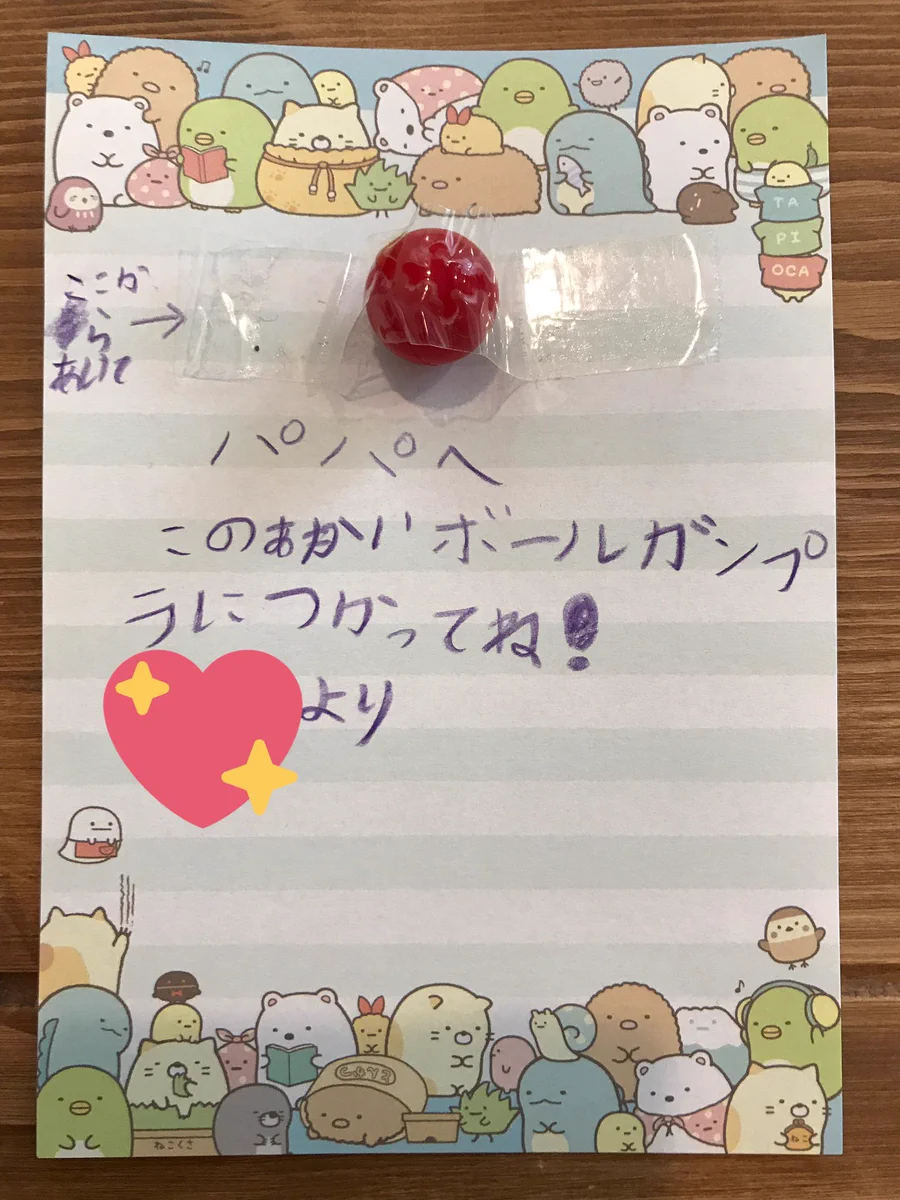 TA
PI
OCA
ここか
ら
あいて
パパへ
このあかいボールガンプ
ラにつかってね!
より
とんかつ
ねこくさ
ねこ